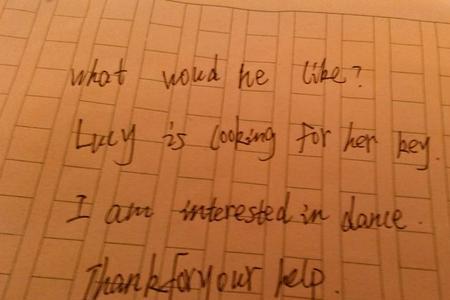 what woud he like?
Lucy is looking for her key.
I am interested in dance.
Thank for your help.